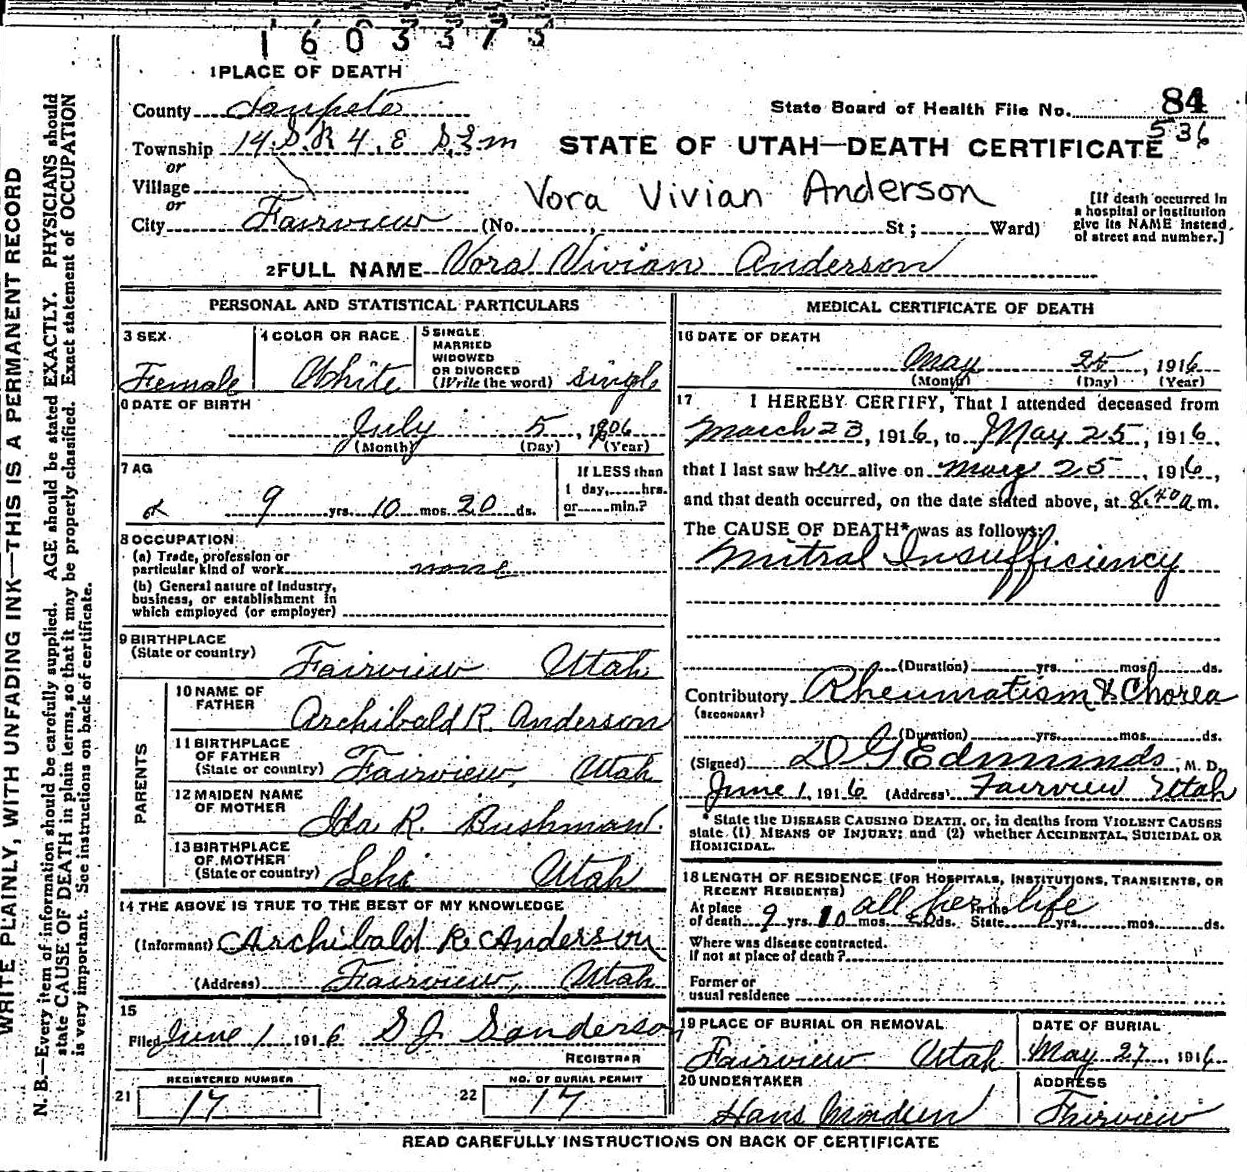 1603373
1 PLACE OF DEATH
County Sanpete
State Board of Health File No. 84
536
Township 14 S. R 4. E S L m
STATE OF UTAH—DEATH CERTIFICATE
or
Village
or
Vora Vivian Anderson
City Fairview (No. , St; Ward)
[If death occurred in
a hospital or institution
give its NAME instead
of street and number.]
2 FULL NAME Vora Vivian Anderson
PERSONAL AND STATISTICAL PARTICULARS
3 SEX
Female
4 COLOR OR RACE
White
5 SINGLE
MARRIED
WIDOWED
OR DIVORCED
(Write the word) single
6 DATE OF BIRTH
July 5, 1906
(Month) (Day) (Year)
7 AG
9 yrs. 10 mos. 20 ds.
If LESS than
1 day, hrs.
or min.?
8 OCCUPATION
(a) Trade, profession or
particular kind of work none
(b) General nature of Industry,
business, or establishment in
which employed (or employer)
9 BIRTHPLACE
(State or country) Fairview Utah
PARENTS
10 NAME OF
FATHER Archibald R. Anderson
11 BIRTHPLACE
OF FATHER
(State or country) Fairview, Utah
12 MAIDEN NAME
OF MOTHER Ida R. Bushman.
13 BIRTHPLACE
OF MOTHER
(State or country) Lehi Utah
14 THE ABOVE IS TRUE TO THE BEST OF MY KNOWLEDGE
(Informant) Archibald R. Anderson
(Address) Fairview, Utah
15
Filed June 1 1916 S J Sanderson
REGISTRAR
21 REGISTERED NUMBER
17
22 NO. OF BURIAL PERMIT
17
MEDICAL CERTIFICATE OF DEATH
16 DATE OF DEATH
May 25, 1916
(Month) (Day) (Year)
17 I HEREBY CERTIFY, That I attended deceased from
March 23, 1916, to May 25, 1916,
that I last saw her alive on May 25, 1916,
and that death occurred, on the date stated above, at 8.40 a m.
The CAUSE OF DEATH* was as follows:
Mitral Insufficiency
(Duration) yrs. mos. ds.
Contributory Rheumatism & Chorea
(SECONDARY)
(Duration) yrs. mos. ds.
(Signed) D G Edmunds, M. D.
June 1, 1916 (Address) Fairview Utah
* State the DISEASE CAUSING DEATH, or, in deaths from VIOLENT CAUSES
state (1) MEANS OF INJURY; and (2) whether ACCIDENTAL, SUICIDAL OR
HOMICIDAL.
18 LENGTH OF RESIDENCE (FOR HOSPITALS, INSTITUTIONS, TRANSIENTS, OR
RECENT RESIDENTS)
all her life
At place In the
of death 9 yrs. 10 mos. 20 ds. State yrs. mos. ds.
Where was disease contracted.
If not at place of death?
Former or
usual residence
19 PLACE OF BURIAL OR REMOVAL
Fairview Utah
DATE OF BURIAL
May 27, 1916
20 UNDERTAKER
Hans
ADDRESS
Fairview
READ CAREFULLY INSTRUCTIONS ON BACK OF CERTIFICATE
WRITE PLAINLY, WITH UNFADING INK—THIS IS A PERMANENT RECORD
N. B.—Every item of information should be carefully supplied. AGE should be stated EXACTLY. PHYSICIANS should
state CAUSE OF DEATH in plain terms, so that it may be properly classified. Exact statement of OCCUPATION
is very important. See instructions on back of certificate.